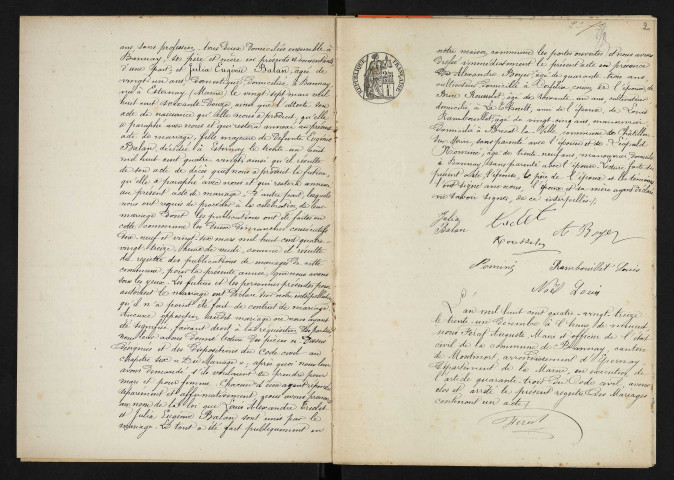 ans, sans profession, tous deux domiciliés ensemble à
Bannay, ses père et mère ici présents et consentants
d'une part; et Julia Eugénie Balan, âgée de
vingt un ans, domestique, domiciliée à Bannay,
née à Esternay (Marne) le vingt sept mars mil
huit cent soixante douze, ainsi que l'atteste son
acte de naissance qu'elle nous a produit, qu'elle
a paraphé avec nous et qui restera annexé au présent
acte de mariage, fille majeure de défunte Eugénie
Balan décédée à Esternay le trente un
mil huit cent quatre vingt ainsi qu'il résulte
de son acte de décès qu'elle nous a produit
qu'elle a paraphé avec nous et qui restera annexé
au présent acte de mariage. D'autre part, lesquels
nous ont requis de procéder à la célébration de leur
mariage dont les publications ont été faites en
cette commune les deux dimanches consécutifs
dix neuf et vingt six mars mil huit cent quatre
vingt treize, heure de midi, comme il résulte
du registre des publications de mariages de cette
commune, pour la présente année, que nous avons
sous les yeux. Les futurs et les personnes présentes pour
autoriser le mariage ont déclaré sur notre interpellation
qu'il n'a point été fait de contrat de mariage.
Aucune opposition audit mariage ne nous ayant
été signifiée, faisant droit à la réquisition des parties
nous leur avons donné lecture des pièces ci-dessus
désignées et des dispositions du Code civil au
chapitre six « du Mariage », après quoi nous leur
avons demandé s'ils voulaient se prendre pour
mari et pour femme. Chacun d'eux ayant répondu
séparément et affirmativement, nous avons prononcé
au nom de la loi que Louis Alexandre
et Julia Eugénie Balan sont unis par le
mariage. Le tout a été fait publiquement en
2
RÉPUBLIQUE FRANÇAISE
notre maison commune les portes ouvertes et nous avons
dressé immédiatement le présent acte en présence
de Alexandre Boyer, âgé de quarante trois ans,
cultivateur domicilié à
âgé de soixante un ans, cultivateur
domicilié à
Rambouillet, âgé de vingt cinq ans,
domicilié à la Ville, commune de Châtillon
sur Morin, sans parenté avec l'épouse et de Léopold
Romine, âgé de trente neuf ans, domicilié
à Bannay, sans parenté avec l'épouse. Lecture faite du
présent acte, l'époux, le père de l'époux et les témoins
ont signé avec nous, et l'épouse
ne savoir signer, de ce interpellée.
Julia
Balan
A Boyer
Rominé
Rambouillet Louis
Noël Louis
L'an mil huit cent quatre-vingt treize
le trente un Décembre à l'heure de minuit,
nous Auguste Maire et officier de l'état
civil de la commune de Bannay, canton
de Montmort, arrondissement d'Epernay
Département de la Marne, en exécution de
l'article quarante trois du Code civil, avons
clos et arrêté le présent registre des Mariages
contenant un acte.